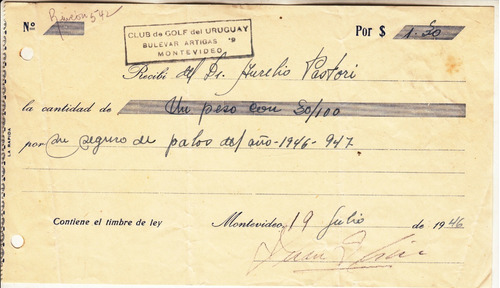 Nº Rincon 542
CLUB de GOLF del URUGUAY
BULEVAR ARTIGAS
MONTEVIDEO
Por $ 1.50
Recibí del Dr. Aurelio Pastori
la cantidad de Un peso con 50/100
por su seguro de palos del año-1946-947
LA RAPIDA
Contiene el timbre de ley
Montevideo, 19 Julio de 1946
Juan